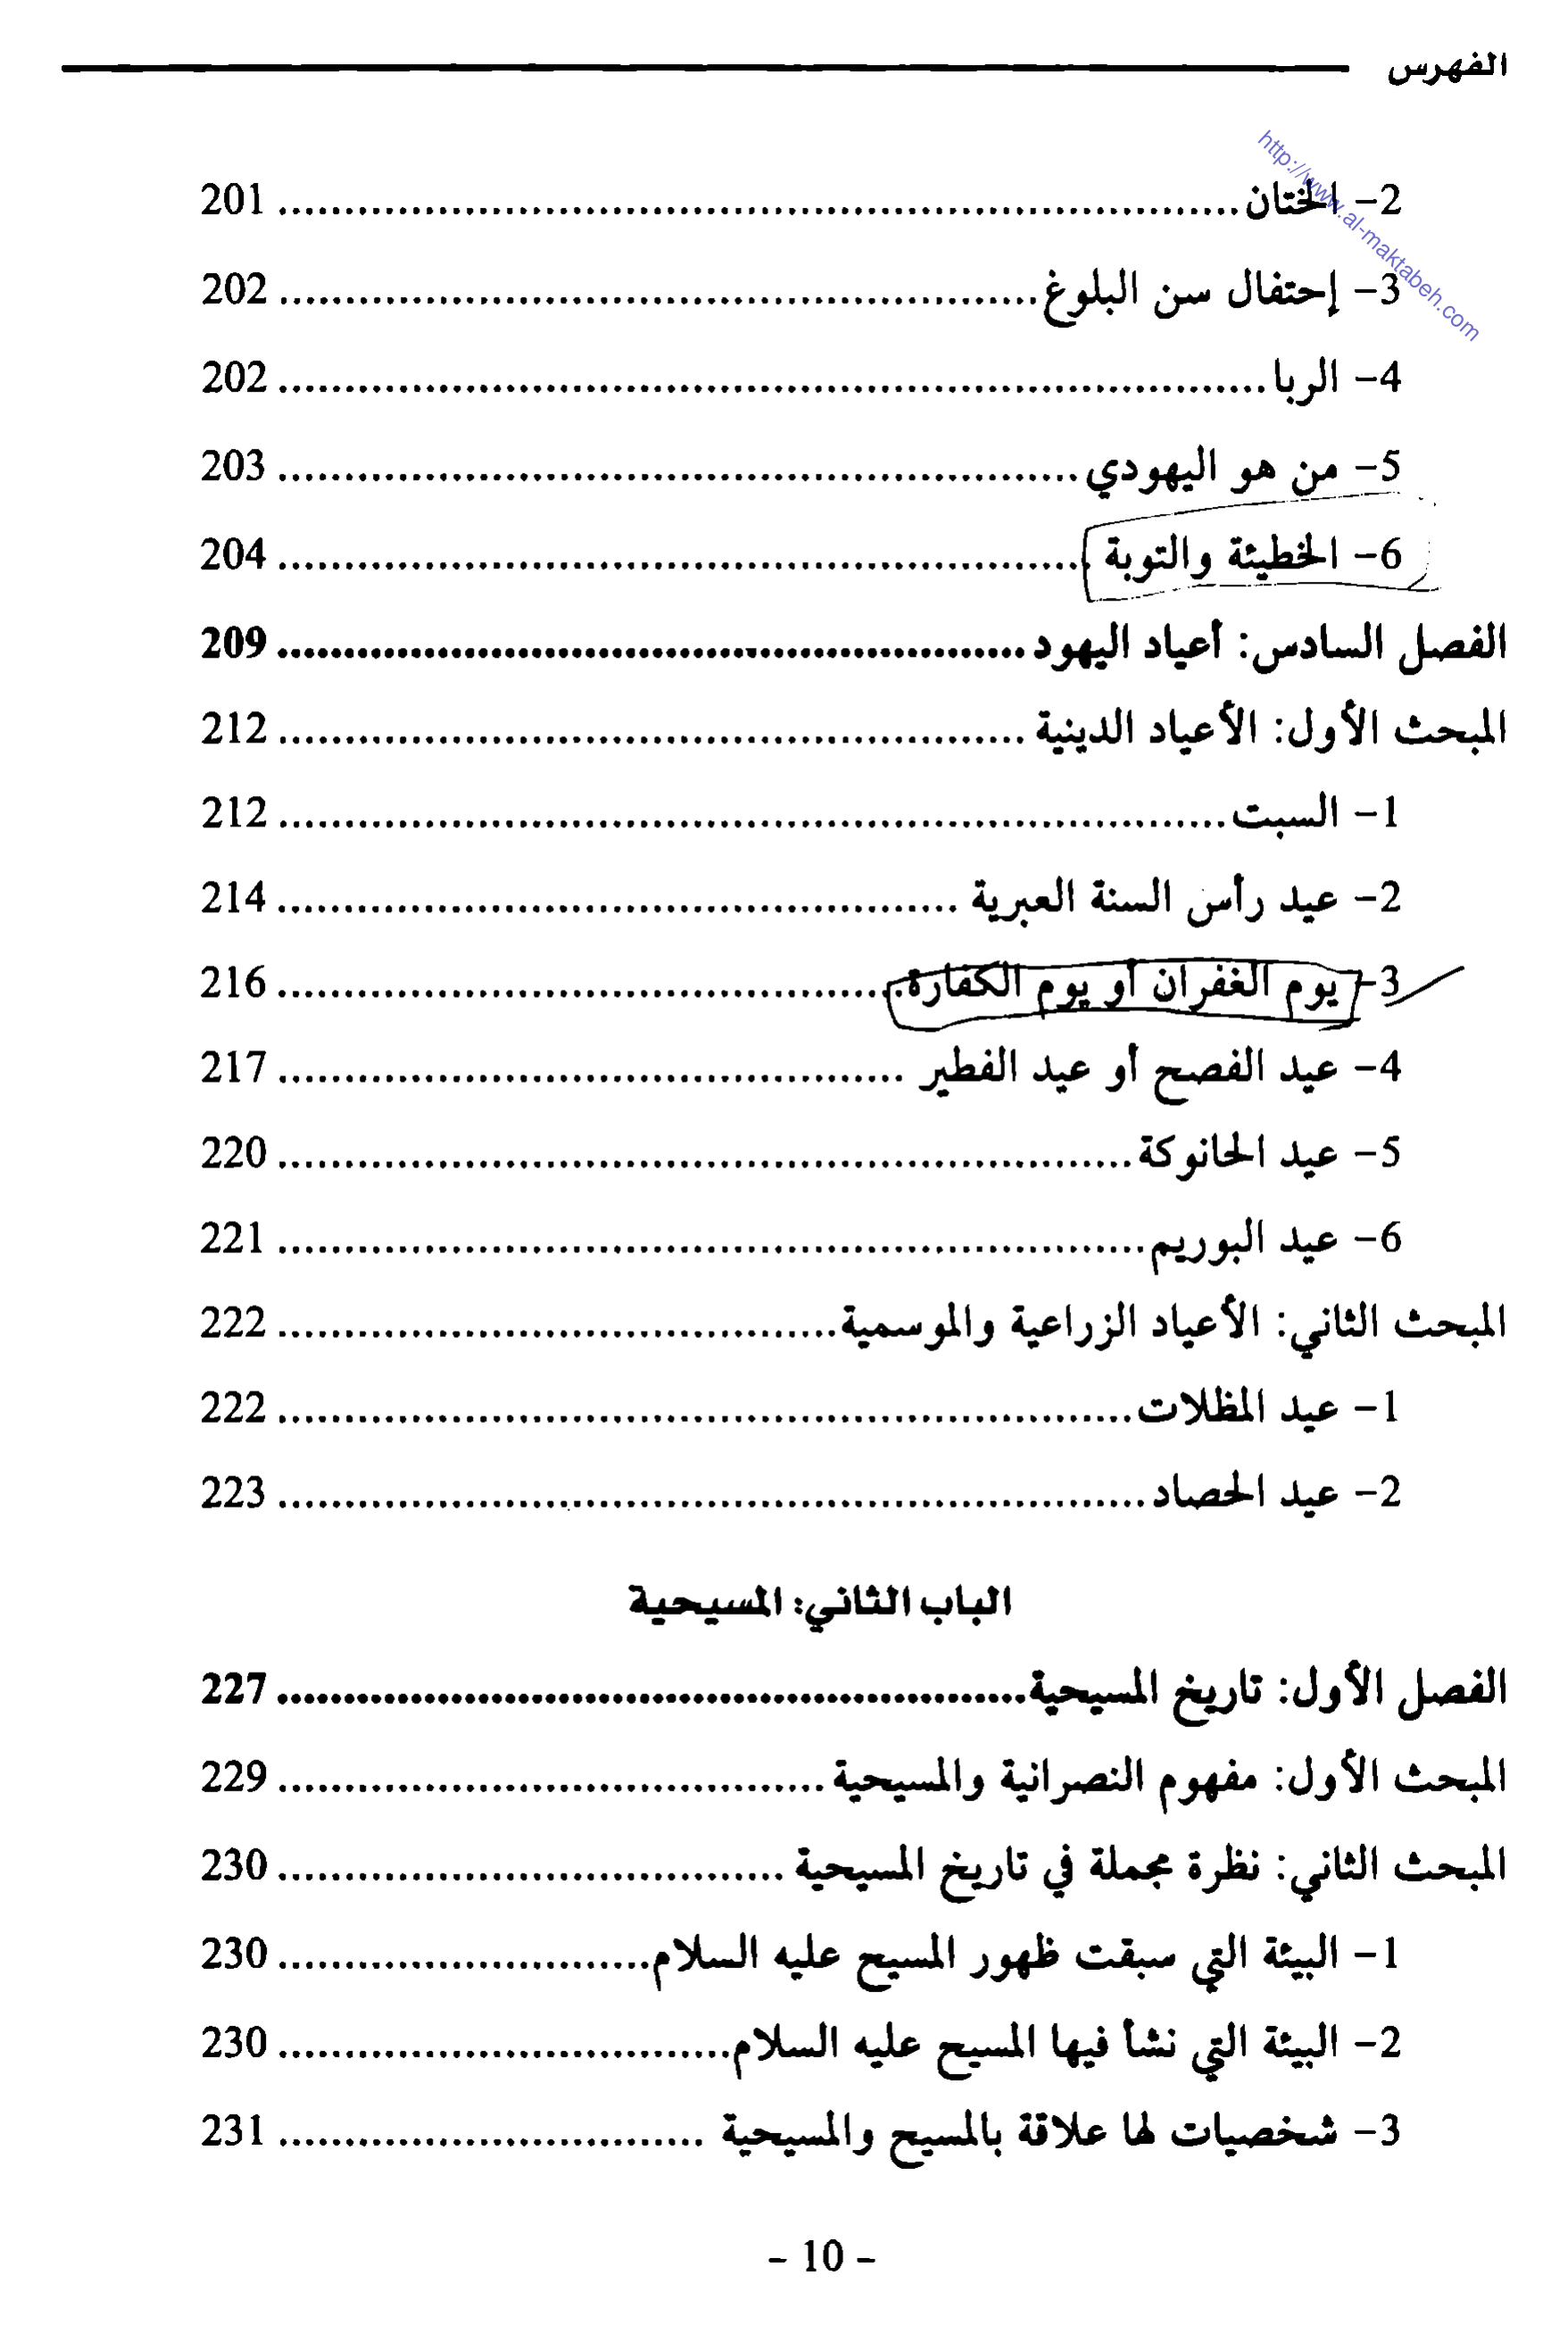 الفهرس
http://www.al-maktabeh.com
2- الختان ........................................ 201
3- إحتفال سن البلوغ ........................................ 202
4- الربا ........................................ 202
5- من هو اليهودي ........................................ 203
6- الخطيئة والتوبة ........................................ 204
الفصل السادس: أعياد اليهود ........................................ 209
المبحث الأول: الأعياد الدينية ........................................ 212
1- السبت ........................................ 212
2- عيد رأس السنة العبرية ........................................ 214
3- يوم الغفران أو يوم الكفارة ........................................ 216
4- عيد الفصح أو عيد الفطير ........................................ 217
5- عيد الحانوكة ........................................ 220
6- عيد البوريم ........................................ 221
المبحث الثاني: الأعياد الزراعية والموسمية ........................................ 222
1- عيد المظلات ........................................ 222
2- عيد الحصاد ........................................ 223
الباب الثاني: المسيحية
الفصل الأول: تاريخ المسيحية ........................................ 227
المبحث الأول: مفهوم النصرانية والمسيحية ........................................ 229
المبحث الثاني: نظرة مجملة في تاريخ المسيحية ........................................ 230
1- البيئة التي سبقت ظهور المسيح عليه السلام ........................................ 230
2- البيئة التي نشأ فيها المسيح عليه السلام ........................................ 230
3- شخصيات لها علاقة بالمسيح والمسيحية ........................................ 231
- 10 -